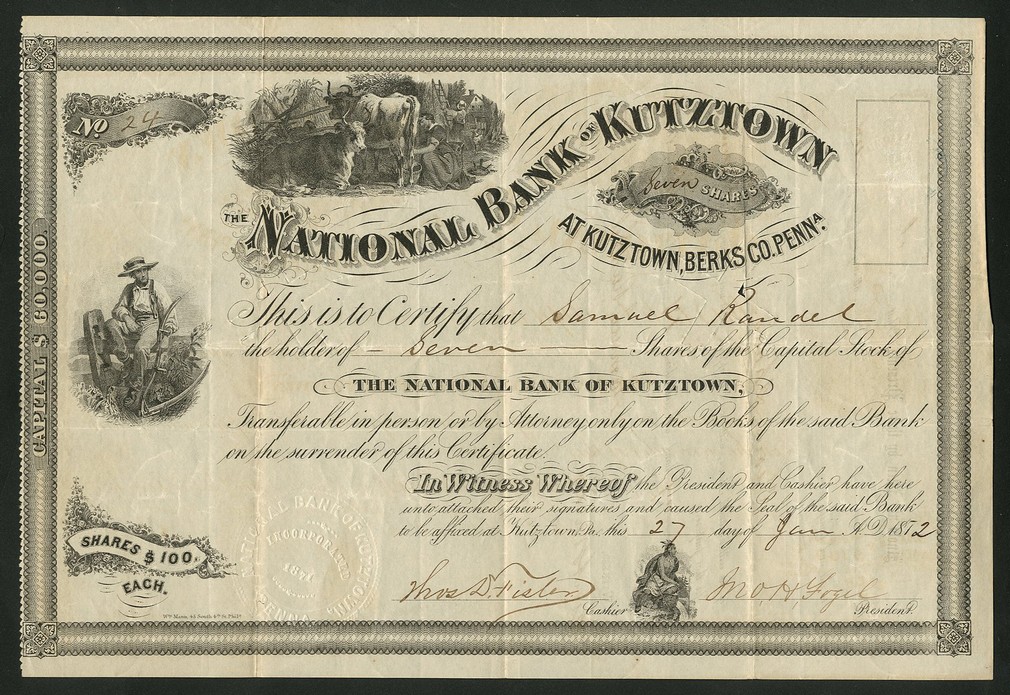 No 24
THE NATIONAL BANK OF KUTZTOWN
Seven SHARES
AT KUTZTOWN, BERKS CO. PENNA.
CAPITAL $60,000.
This is to Certify that Samuel Kandel
the holder of – Seven —— Shares of the Capital Stock of
THE NATIONAL BANK OF KUTZTOWN,
Transferable in person or by Attorney only on the Books of the said Bank
on the surrender of this Certificate.
In Witness Whereof the President and Cashier have here
unto attached their signatures and caused the Seal of the said Bank
to be affixed at Kutztown Pa. this 27 day of Jan A.D. 1872
SHARES $100.
EACH.
NATIONAL BANK OF KUTZTOWN
INCORPORATED
1871
PENNA
Thos D. Fister
Cashier
Jno H. Fogel
President
Wm Mann, 43 South 4th St. Phila.